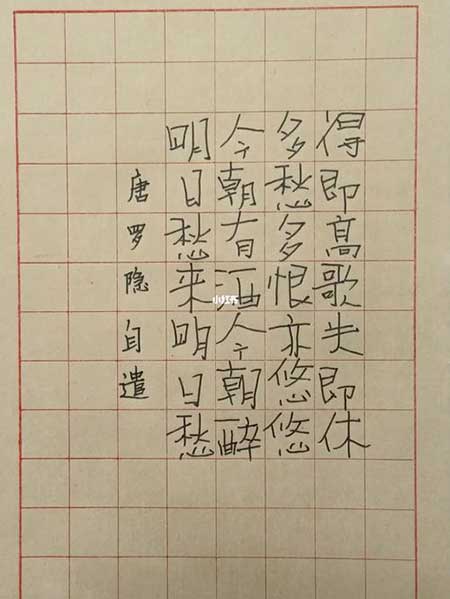 得即高歌失即休
多愁多恨亦悠悠
今朝有酒今朝醉
明日愁来明日愁
唐罗隐自遣
小红书